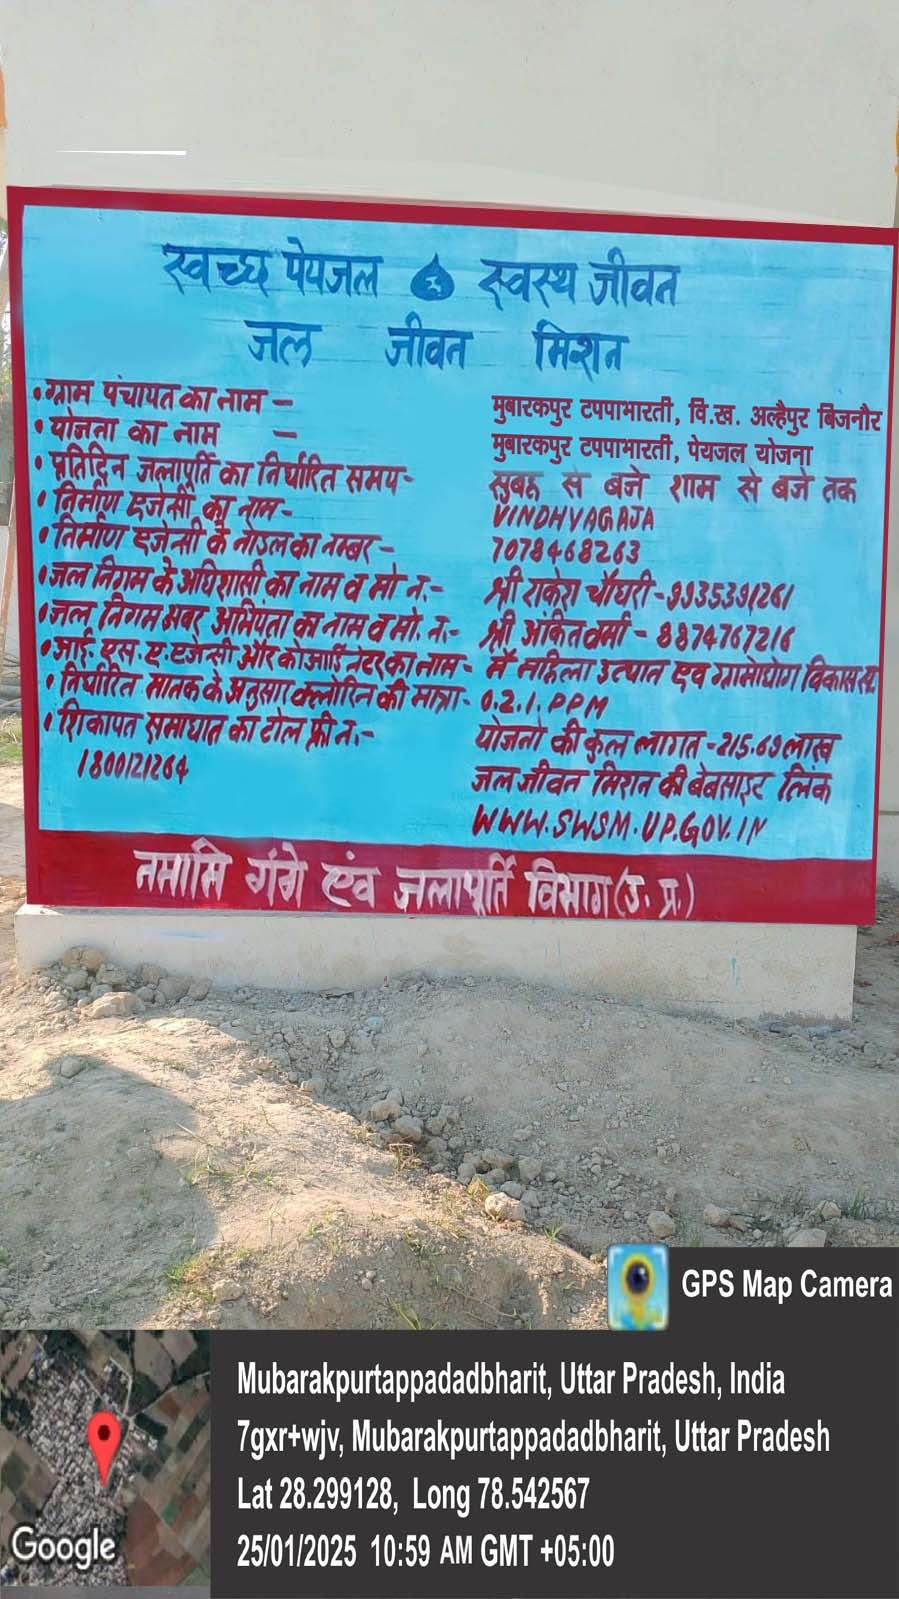 स्वच्छ पेयजल स्वस्थ जीवन
जल जीवन मिशन
• ग्राम पंचायत का नाम – मुबारकपुर टपपाभारती, वि.ख. अल्हैपुर बिजनौर
• योजना का नाम – मुबारकपुर टपपाभारती, पेयजल योजना
• प्रतिदिन जलापूर्ति का निर्धारित समय- सुबह से बजे शाम से बजे तक
• निर्माण एजेन्सी का नाम- VINDHYAGAJA
• निर्माण एजेन्सी के नोडल का नम्बर- 7078468263
• जल निगम के अधिशासी का नाम व मो न.- श्री राकेश चौधरी-9935391261
• जल निगम अवर अभियंता का नाम व मो. न.- श्री अंकित वर्मा - 8874767216
• आई. एस. ए. एजेन्सी और कोआर्डिनेटर का नाम- मै महिला उत्थान एंव ग्रामोद्योग विकास सं
• निर्धारित मानक के अनुसार क्लोरिन की मात्रा- 0.2.1. PPM
• शिकायत समाधान का टोल फ्री न.- योजना की कुल लागत -215.69 लाख
1800121264 जल जीवन मिशन की बेबसाइट लिंक
WWW.SWSM.UP.GOV.IN
नमामि गंगे एंव जलापूर्ति विभाग (उ. प्र.)
GPS Map Camera
Mubarakpurtappadadbharit, Uttar Pradesh, India
7gxr+wjv, Mubarakpurtappadadbharit, Uttar Pradesh
Lat 28.299128, Long 78.542567
25/01/2025 10:59 AM GMT +05:00
Google